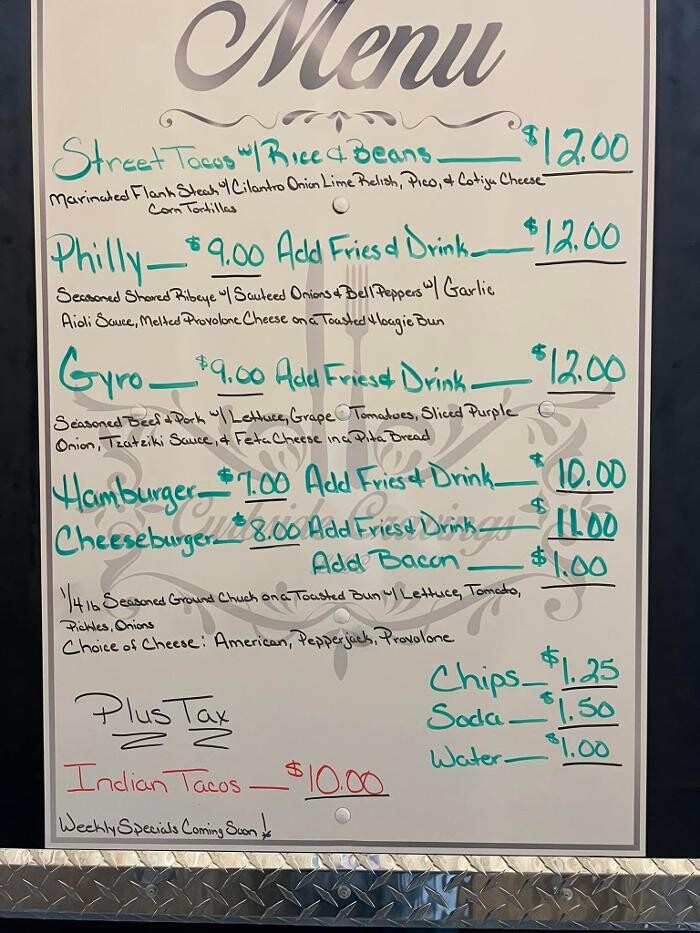 Menu
Street Tacos w/ Rice & Beans $12.00
Marinated Flank Steak w/ Cilantro Onion Lime Relish, Pico, & Cotija Cheese
Corn Tortillas
Philly $9.00 Add Fries & Drink $12.00
Seasoned Shaved Ribeye w/ Sauteed Onions & Bell Peppers w/ Garlic
Aioli Sauce, Melted Provolone Cheese on a Toasted Hoagie Bun
Gyro $9.00 Add Fries & Drink $12.00
Seasoned Beef & Pork w/ Lettuce, Grape Tomatoes, Sliced Purple
Onion, Tzatziki Sauce, & Feta Cheese in a Pita Bread
Hamburger $7.00 Add Fries & Drink $10.00
Curbside Cravings
Cheeseburger $8.00 Add Fries & Drink $11.00
Add Bacon $1.00
1/4 lb Seasoned Ground Chuck on a Toasted Bun w/ Lettuce, Tomato,
Pickles, Onions
Choice of Cheese: American, Pepperjack, Provolone
Chips $1.25
Plus Tax
Soda $1.50
Water $1.00
Indian Tacos $10.00
Weekly Specials Coming Soon!